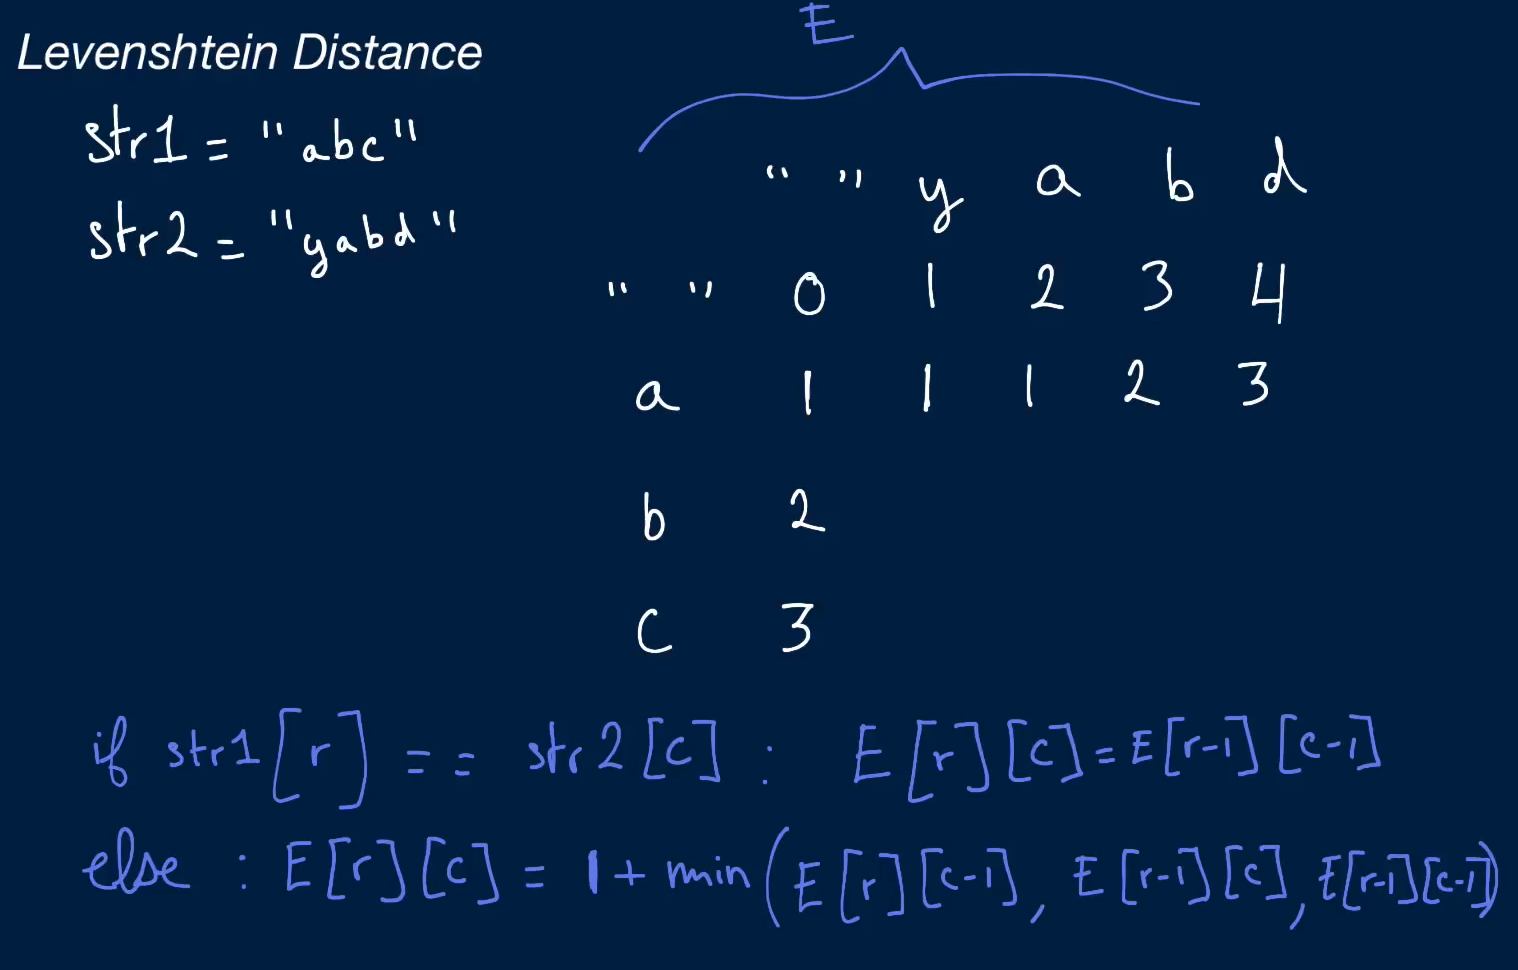 Levenshtein Distance
E
str1 = "abc"
str2 = "yabd"
" " y a b d
" " 0 1 2 3 4
a 1 1 1 2 3
b 2
c 3
if str1[r] == str2[c] : E[r][c] = E[r-1][c-1]
else : E[r][c] = 1 + min(E[r][c-1], E[r-1][c], E[r-1][c-1])